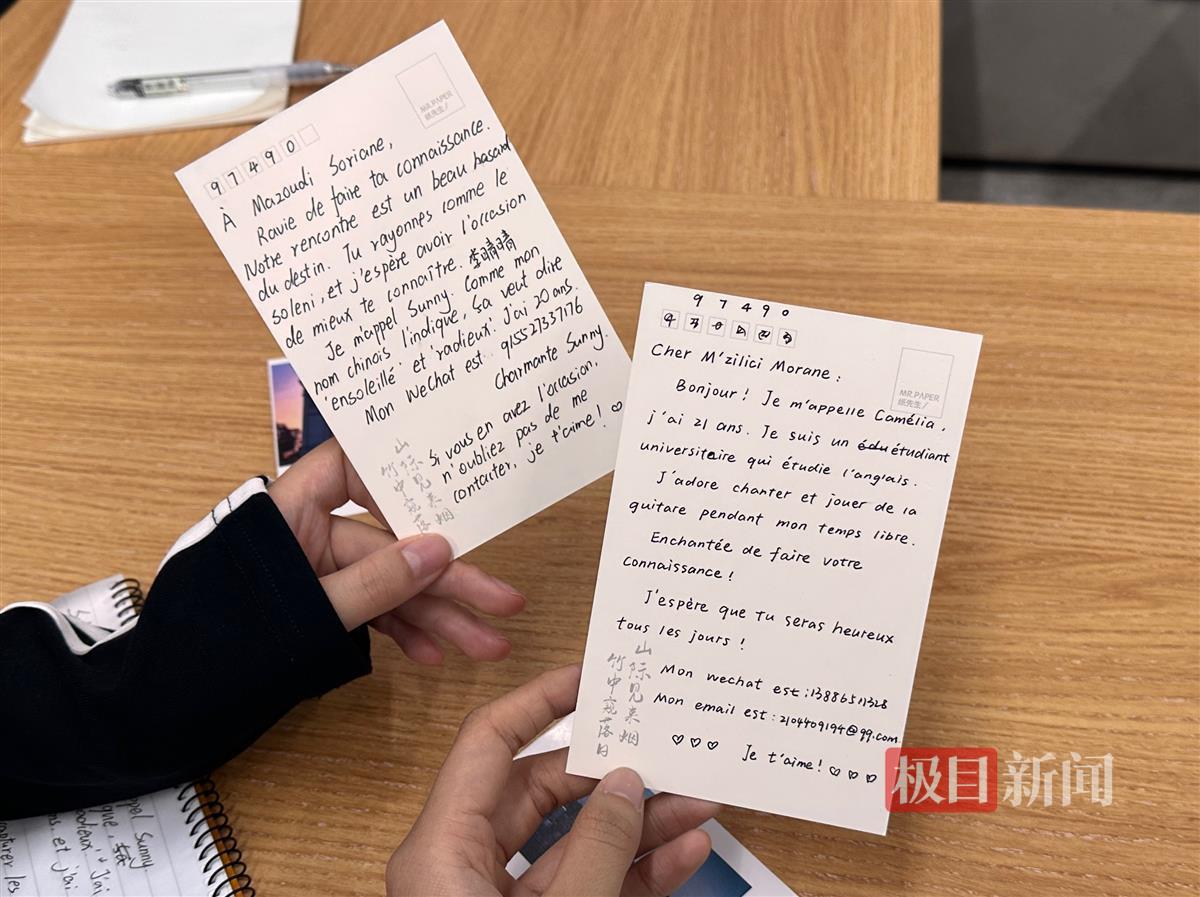 MR.PAPER
纸先生/
97490
À Mazoudi Soriane,
Ravie de faire ta connaissance.
Notre rencontre est un beau hasard
du destin. Tu rayonnes comme le
soleni, et j'espère avoir l'occasion
de mieux te connaître. 李晴晴
Je m'appel Sunny. Comme mon
nom chinois l'indique, sa veut dire
'ensoleillé' et 'radieux'. J'ai 20 ans.
Mon WeChat est: 915527337176
Charmante Sunny.
Si vous en avez l'occasion,
n'oubliez pas de me
contacter, je t'aime! ♡
山际见来烟
竹中窥落
97490
Cher M'zilici Morane:
MR.PAPER
纸先生/
Bonjour! Je m'appelle Camélia,
j'ai 21 ans. Je suis un édu étudiant
universitaire qui étudie l'anglais.
J'adore chanter et jouer de la
guitare pendant mon temps libre.
Enchantée de faire votre
connaissance!
J'espère que tu seras heureux
tous les jours!
Mon wechat est:13886511328
Mon email est:2104409194@qq.com
♡♡♡ Je t'aime! ♡♡♡
山际见来烟
竹中窥落日
极目新闻
appel Sunny
ique,
ns. et j'ai
radieux'. J'ai
capturer les